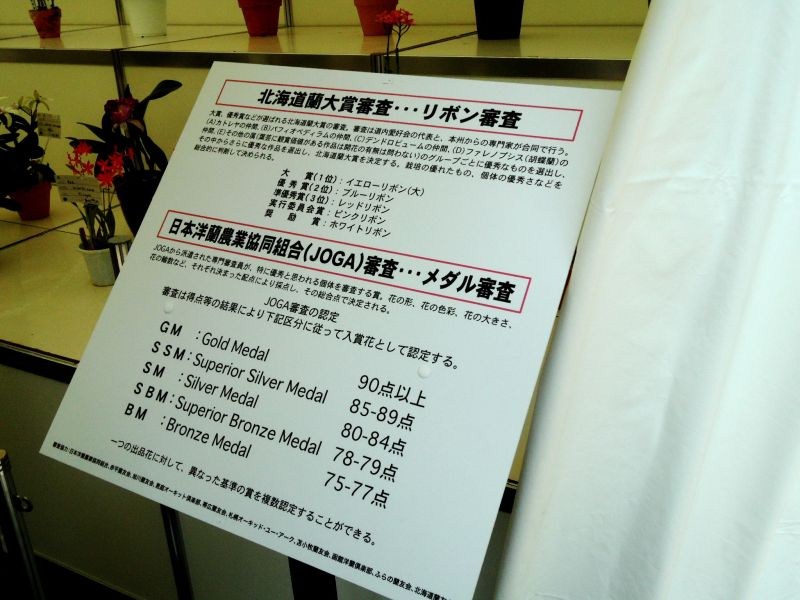 北海道蘭大賞審査･･･リボン審査
大賞、優秀賞などが選ばれる北海道蘭大賞の審査。審査は道内愛好会の代表と、本州からの専門家が合同で行う。
(A)カトレヤの仲間、(B)パフィオペディラムの仲間、(C)デンドロビュームの仲間、(D)ファレノプシス(胡蝶蘭)の
仲間、(E)その他の属(葉芸に観賞価値がある作品は開花の有無は問わない)のグループごとに優秀なものを選出し、
その中からさらに優秀な作品を選出し、北海道蘭大賞を決定する。栽培の優れたもの、個体の優秀さなどを
総合的に判断して決められる。
大 賞(1位)：イエローリボン(大)
優 秀 賞(2位)：ブルーリボン
準優秀賞(3位)：レッドリボン
実行委員会賞：ピンクリボン
奨 励 賞：ホワイトリボン
日本洋蘭農業協同組合(JOGA)審査･･･メダル審査
JOGAから派遣された専門審査員が、特に優秀と思われる個体を審査する賞。花の形、花の色彩、花の大きさ、
花の輪数など、それぞれ決まった配点により採点し、その総合点で決定される。
JOGA審査の認定
審査は得点等の結果により下記区分に従って入賞花として認定する。
GM：Gold Medal 90点以上
SSM：Superior Silver Medal 85-89点
SM：Silver Medal 80-84点
SBM：Superior Bronze Medal 78-79点
BM：Bronze Medal 75-77点
一つの出品花に対して、異なった基準の賞を複数認定することができる。